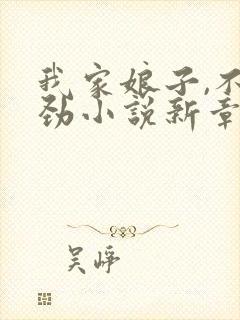 我家娘子,不
劲小说新章
吴峥